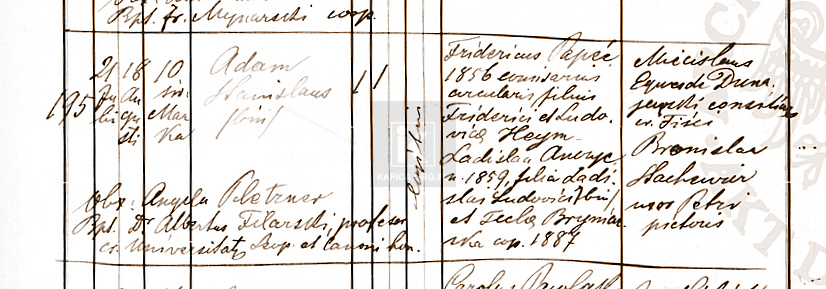 Bpt. fr. Mynarski coop.
195
21 18 10.
Ju Au św.
lii gu Mar
sti ka
Adam
Stanislaus
/bini/
1 1
Fridericus Papeé
1856 consiarius
circularis filius
Friderici et Ludo
vicæ Heym
Ladislaa
n. 1859, filia Ladi
slai Ludovici /bini/
et Teclæ Bryniar
ska cop. 1887
Miecislaus
Eques de Duna
jewski consiliarius
Bronislaa
Stachiewicz
uxor Petri
pictoris
Obs. Angela Pletzner
Bpt. Dr Albertus Filarski, professor
cr. Universitatis Leop. et canoni. hon.